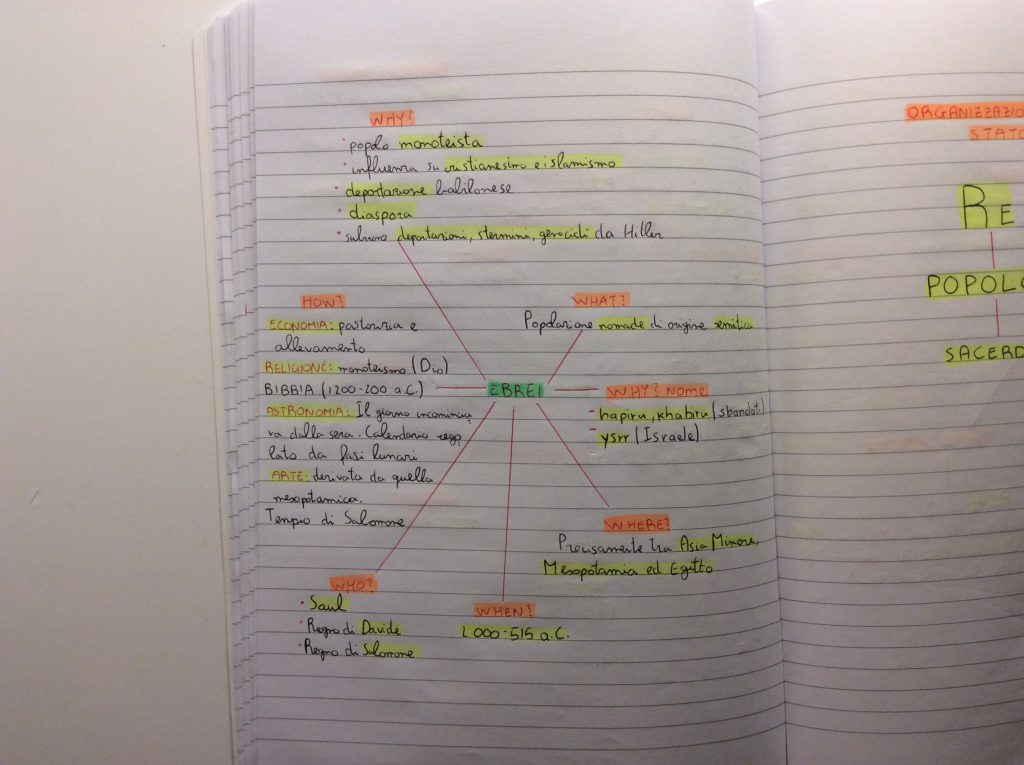 WHY?
• popolo monoteista
• influenza su cristianesimo e islamismo
• deportazione babilonese
• diaspora
• subirono deportazioni, stermini, genocidi da Hitler
HOW?
ECONOMIA: pastorizia e
allevamento
RELIGIONE: monoteismo (Dio)
BIBBIA (1200-200 a.C.)
ASTRONOMIA: Il giorno incomincia
va dalla sera. Calendario rego
lato da fasi lunari
ARTE: derivata da quella
mesopotamica.
Tempio di Salomone
WHAT?
Popolazione nomade di origine semitica
EBREI
WHY? NOME
- hapiru, khabiru (sbandati)
- ysrr (Israele)
WHERE?
Precisamente tra Asia Minore,
Mesopotamia ed Egitto
WHO?
• Saul
• Regno di Davide
• Regno di Salomone
WHEN?
2000-515 a.C.
ORGANIZZAZIO
STATO
RE
POPOLO
SACERD